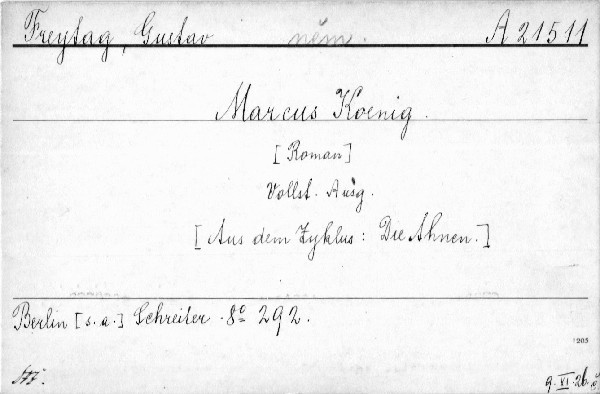 Freytag, Gustav něm. A 21511
Marcus Koenig.
[Roman]
Vollst. Ausg.
[Aus dem Zyklus: Die Ahnen.]
Berlin [s. a.] Schreiter. 8° 292.
1205
9. XI. 26.